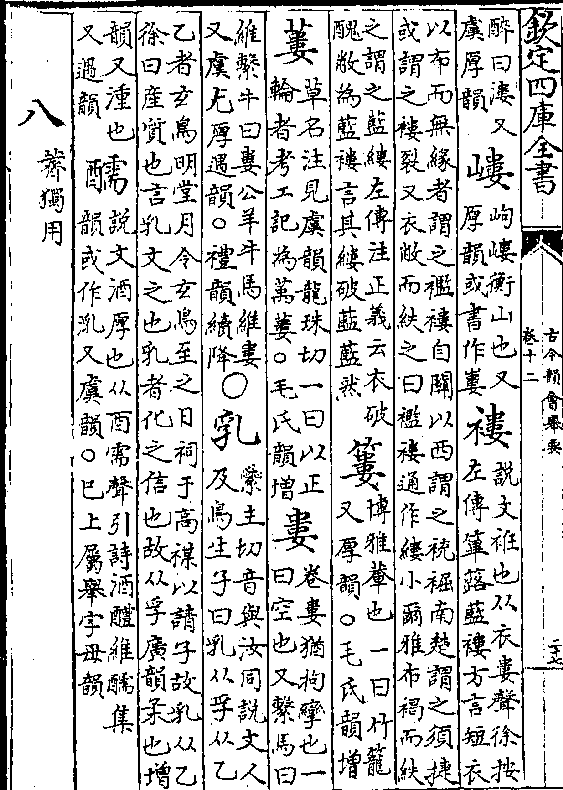 欽定四庫全書
古今韻會舉要
卷十二
二十七
醉曰漊又
虞厚韻
嶁
岣嶁衡山也又
厚韻或書作䝏
褸
說文衽也从衣婁聲徐按
左傳篳蕗藍褸方言短衣
以布而無緣者謂之襤褸自關以西謂之䘺裾南楚謂之須捷
或謂之褸裂又衣敝而紩之曰襤褸通作縷小爾雅布褐而紩
之謂之藍縷左傳注正義云衣破
醜敝為藍褸言其縷破藍藍然
簍
博雅䉕也一曰竹籠
又厚韻○毛氏韻增
蔞
草名注見虞韻龍珠切一曰以正
輪者考工記為萬蔞○毛氏韻增
婁
卷婁猶拘攣也一
曰空也又繫馬曰
維繫牛曰婁公羊牛馬維婁
又虞尤厚遇韻○禮韻續降
○乳
橤主切音與汝同說文人
及鳥生子曰乳从孚从乙
乙者玄鳥明堂月令玄鳥至之日祠于高禖以請子故乳从乙
徐曰産質也言乳文之也乳者化之信也故从孚廣韻柔也增
韻又湩也
又遇韻
醹
說文酒厚也从酉需聲引詩酒醴維醹集
韻或作乳又虞韻○巳上屬舉字母韻
八
薺獨用